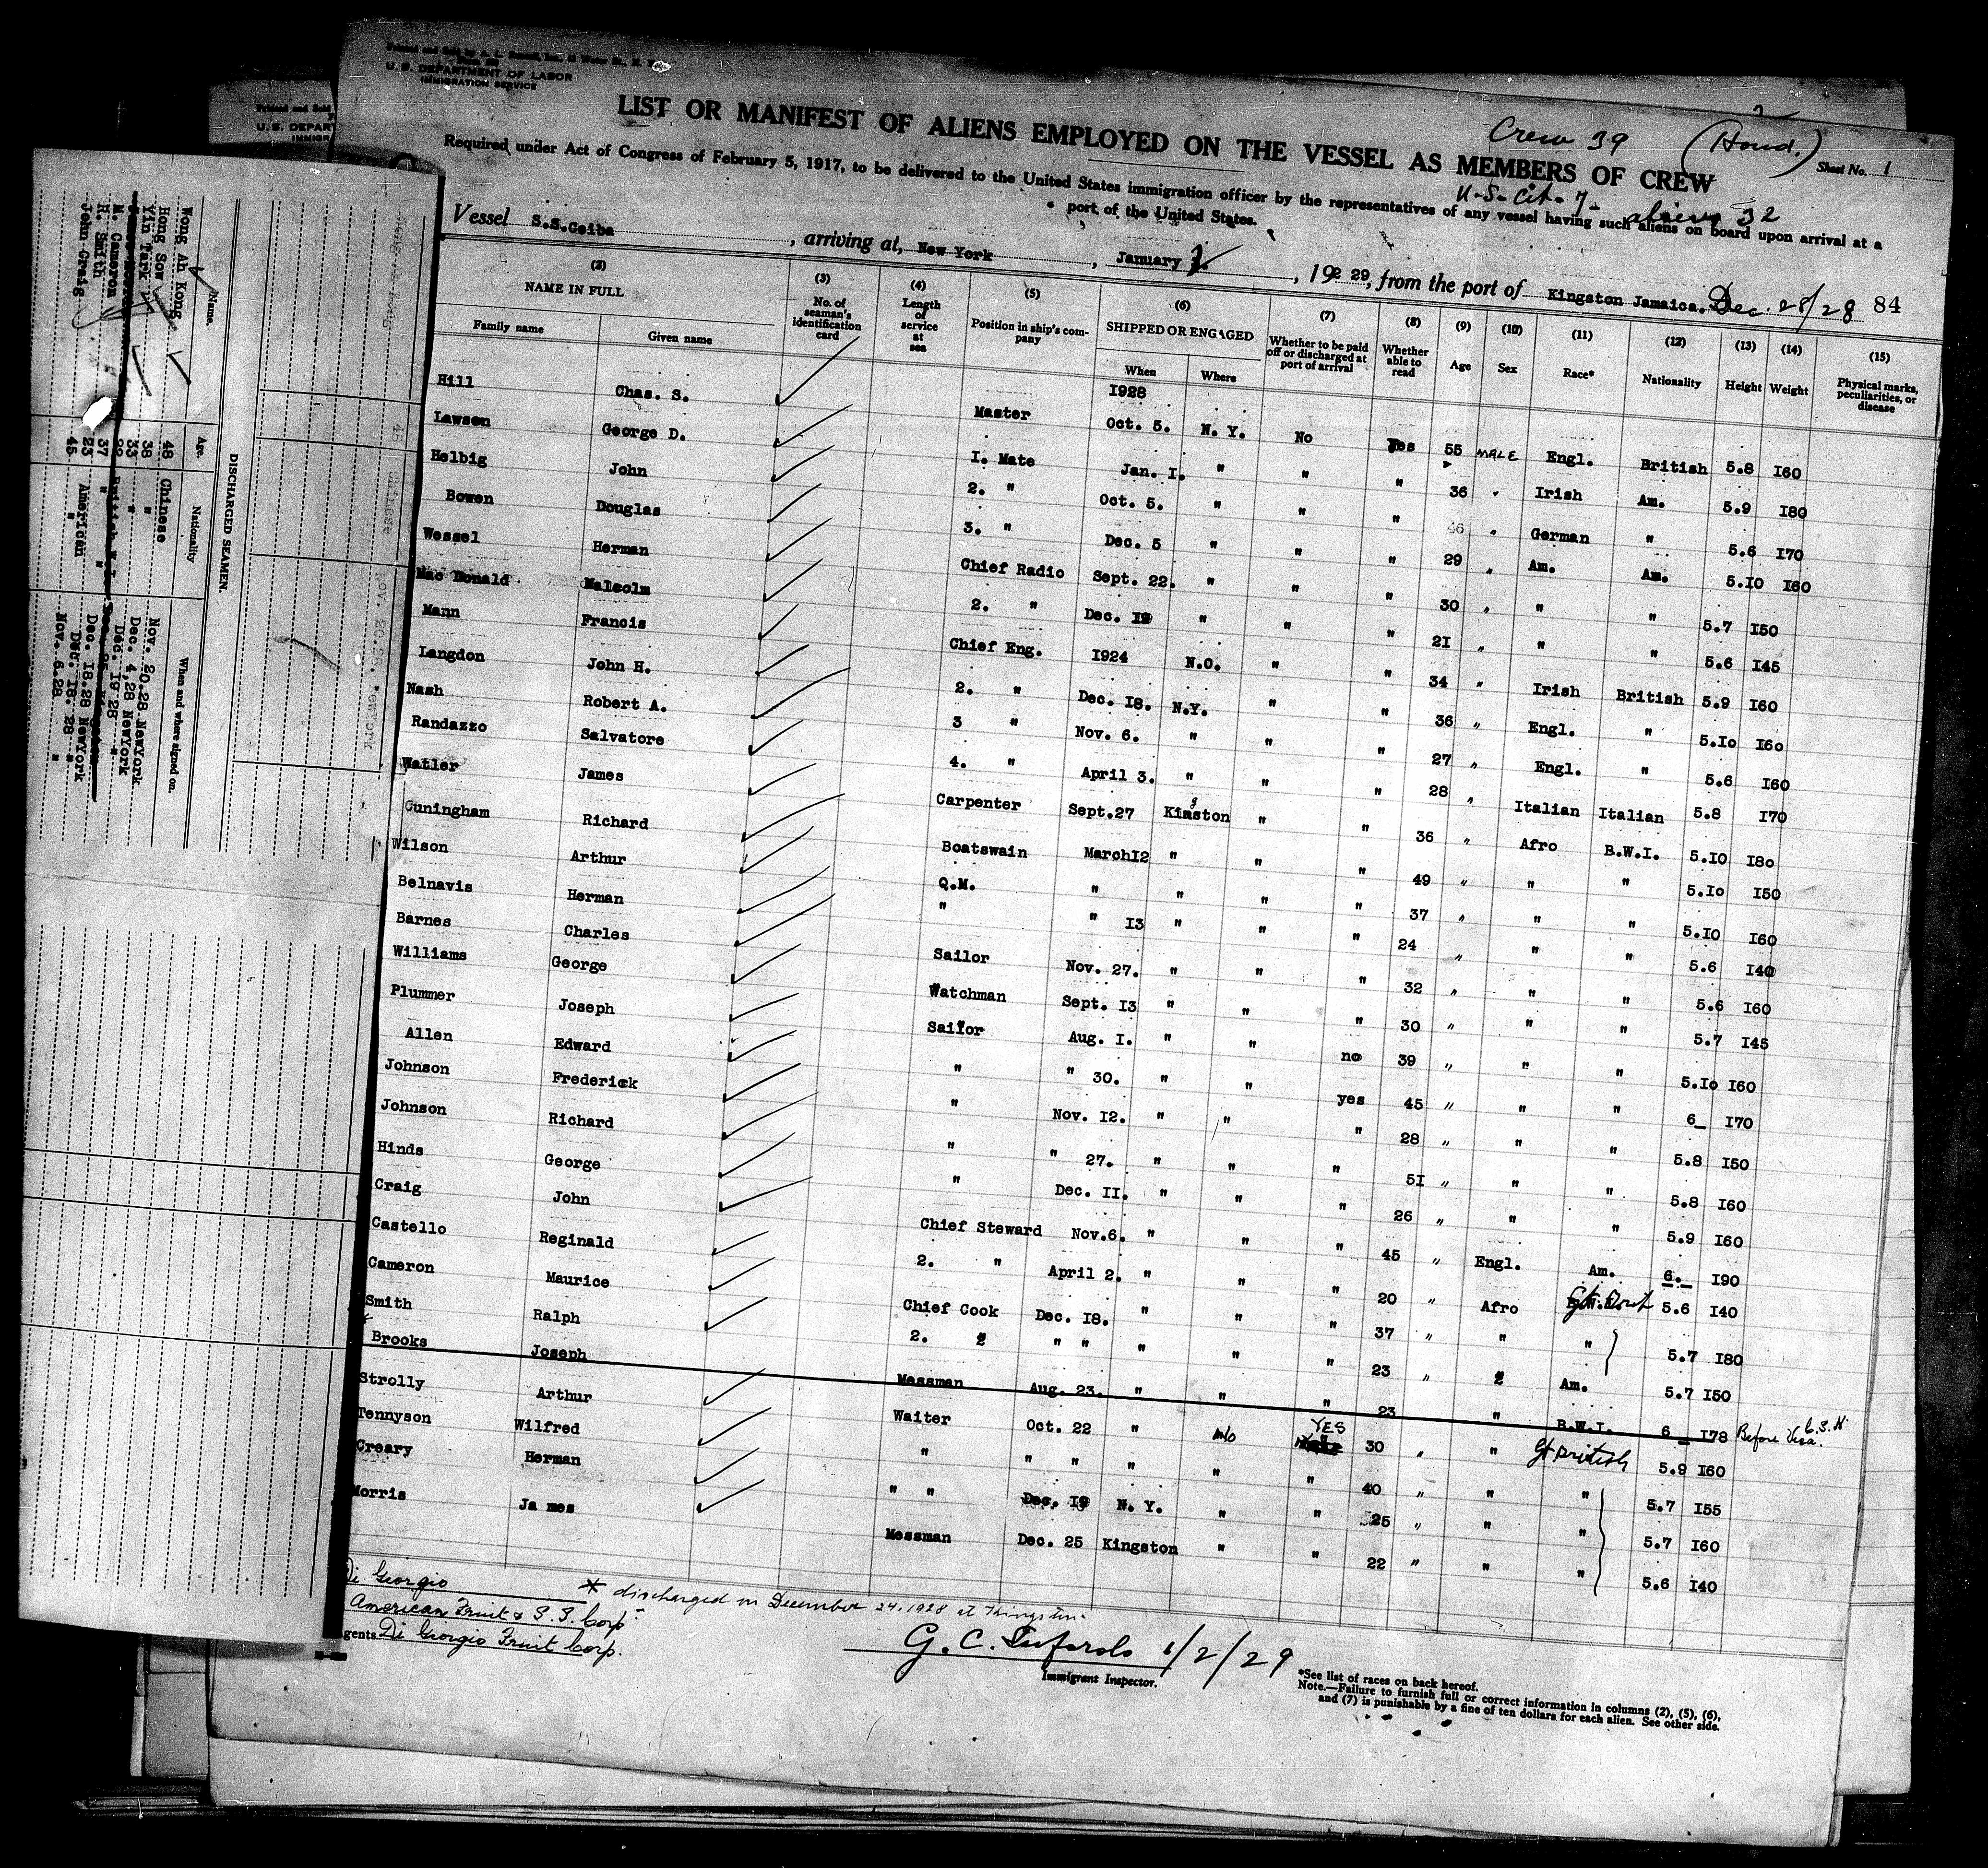 U. S. DEPARTMENT OF LABOR
IMMIGRATION SERVICE
LIST OR MANIFEST OF ALIENS EMPLOYED ON THE VESSEL AS MEMBERS OF CREW
Crew 39 (Hond.) Sheet No. 1
U.S. Cit. 7- aliens 32
Required under Act of Congress of February 5, 1917, to be delivered to the United States immigration officer by the representatives of any vessel having such aliens on board upon arrival at a
port of the United States.
Vessel S.S.Ceiba, arriving at, New York, January 2., 192 29, from the port of Kingston Jamaica. Dec. 28/28 84
(2) (3) (4) (5) (6) (7) (8) (9) (10) (11) (12) (13) (14) (15)
NAME IN FULL No. of seaman's identification card Length of service at sea Position in ship's company SHIPPED OR ENGAGED Whether to be paid off or discharged at port of arrival Whether able to read Age Sex Race* Nationality Height Weight Physical marks, peculiarities, or disease
Family name Given name When Where
1928
Hill Chas. S. Master Oct. 5. N. Y. No Yes 55 MALE Engl. British 5.8 I60
Lawson George D. I. Mate Jan. I. " " " 36 " Irish Am. 5.9 I80
Helbig John 2. " Oct. 5. " " " 46 " German " 5.6 I70
Bowen Douglas 3. " Dec. 5 " " " 29 " Am. Am. 5.I0 I60
Wessel Herman Chief Radio Sept. 22. " " " 30 " " " 5.7 I50
Mac Donald Malcolm 2. " Dec. I9 " " " 2I " " " 5.6 I45
Mann Francis Chief Eng. I924 N.O. " " 34 " Irish British 5.9 I60
Langdon John H. 2. " Dec. I8. N.Y. " " 36 " Engl. " 5.Io I6o
Nash Robert A. 3 " Nov. 6. " " " 27 " Engl. " 5.6 I60
Randazzo Salvatore 4. " April 3. " " " 28 " Italian Italian 5.8 I70
Watler James Carpenter Sept.27 Kingston " " 36 " Afro B.W.I. 5.IO I8o
Cuningham Richard Boatswain MarchI2 " " " 49 " " " 5.Io I50
Wilson Arthur Q.M. " " " " 37 " " " 5.IO I60
Belnavis Herman " " I3 " " " 24 " " " 5.6 I40
Barnes Charles Sailor Nov. 27. " " " 32 " " " 5.6 I60
Williams George Watchman Sept. I3 " " " 30 " " " 5.7 I45
Plummer Joseph Sailor Aug. I. " " no 39 " " " 5.Io I60
Allen Edward " " 30. " " yes 45 " " " 6_ I70
Johnson Frederick " Nov. I2. " " " 28 " " " 5.8 I50
Johnson Richard " " 27. " " " 5I " " " 5.8 I60
Hinds George " Dec. II. " " " 26 " " " 5.9 I60
Craig John Chief Steward Nov.6. " " " 45 " Engl. Am. 6._ I90
Castello Reginald 2. " April 2. " " " 20 " Afro Gt Brit 5.6 I40
Cameron Maurice Chief Cook Dec. I8. " " " 37 " " " 5.7 I80
Smith Ralph 2. " " " " " " 23 " " Am. 5.7 I50
Brooks Joseph Messman Aug. 23. " " " 23 " B.W.I. 6_ I78 Before Visa.
Strolly Arthur Waiter Oct. 22 " No YES 30 " " Gt British 5.9 I60
Tennyson Wilfred " " " " " " 40 " " " 5.7 I55
Creary Herman " " Dec. I9 N. Y. " " 25 " " " 5.7 I60
Morris Ja mes Messman Dec. 25 Kingston " " 22 " " " 5.6 I40
Di Giorgio
American Fruit & S.S. Corp.
Agents Di Giorgio Fruit Corp.
* discharged on December 24. 1928 at Kingston.
1/2/29
Immigrant Inspector.
*See list of races on back hereof.
Note.—Failure to furnish full or correct information in columns (2), (5), (6),
and (7) is punishable by a fine of ten dollars for each alien. See other side.
DISCHARGED SEAMEN.
Name. Age. Nationality When and where signed on.
Wong Ah Kong 48 Chinese Nov. 20.28 NewYork
Hong Sow 38 " Dec. 4,28 NewYork
Yin Tark 33 " Dec. 19 28 "
M. Cameron 37 " Dec. 18.28 NewYork
R. Smith 23 American Dec. 18. 28 "
John Craig 45 " Nov. 6.28 "